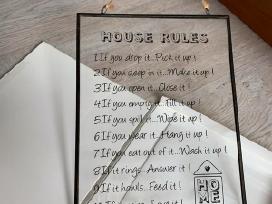 HOUSE RULES
1 If you drop it...Pick it up!
2 If you sleep in it...Make it up!
3 If you open it...Close it!
4 If you empty it...fill it up!
5 If you spill it...Wipe it up!
6 If you wear it...Hang it up!
7 If you eat out of it...Wash it up!
8 If it rings...Answer it!
9 If it howls...Feed it!
HOME